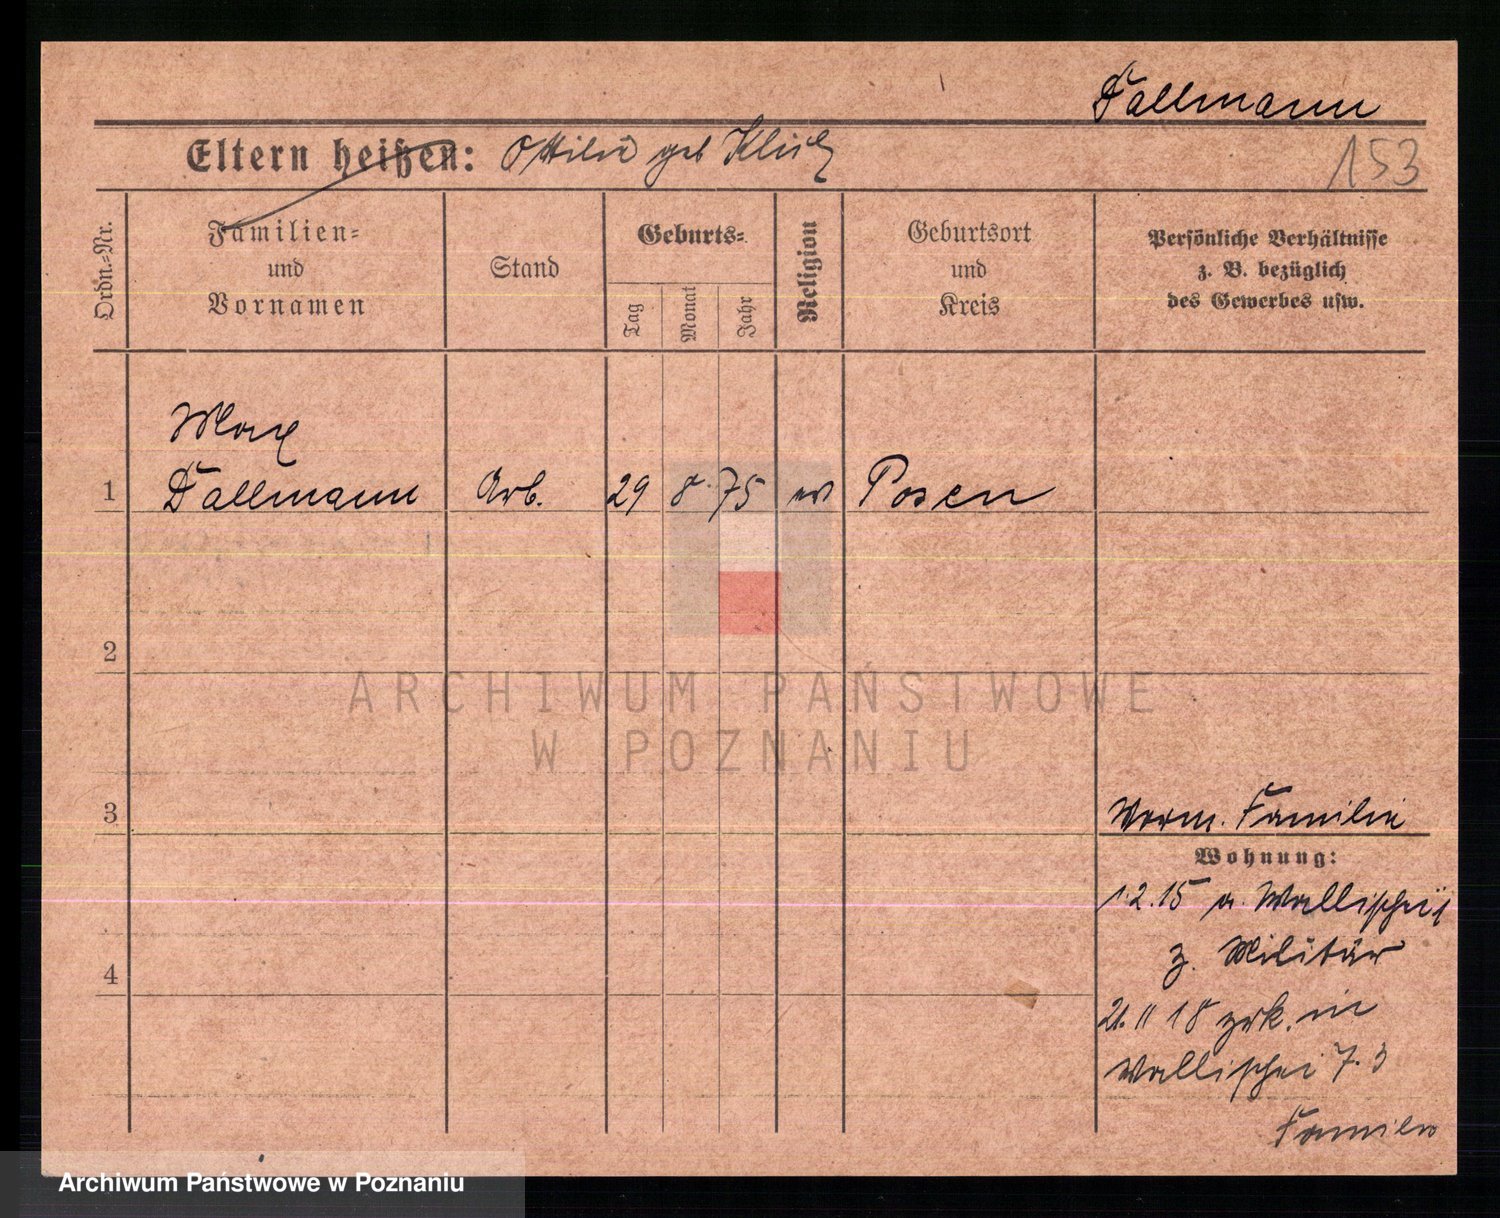 Fallmann
Eltern heißen: Ottilie geb
153
Ordn.-Nr.
Familien-
und
Vornamen
Stand
Geburts-
Tag
Monat
Jahr
Religion
Geburtsort
und
Kreis
Persönliche Verhältnisse
z. B. bezüglich
des Gewerbes usw.
Max
1 Fallmann Arb. 29 8 75 ev Posen
2
ARCHIWUM PAŃSTWOWE
W POZNANIU
3
Verm. Familie
Wohnung:
1.2.15 a. Wallischei
z. Militär
4
21. 11 18 zrk. in
Wallischei 7.3
Familie
Archiwum Państwowe w Poznaniu